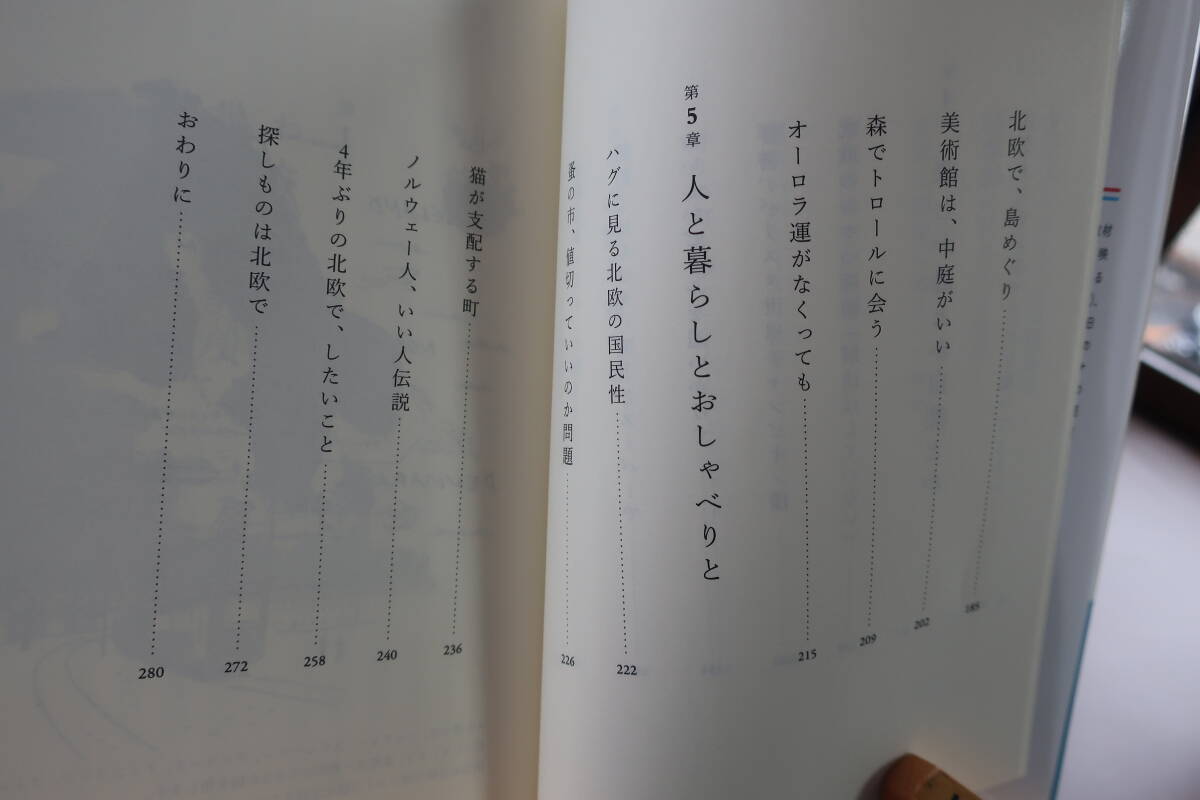 北欧で、島めぐり……185
美術館は、中庭がいい……202
森でトロールに会う……209
オーロラ運がなくっても……215
第5章 人と暮らしとおしゃべりと
ハグに見る北欧の国民性……222
蚤の市、値切っていいのか問題……226
猫が支配する町……236
ノルウェー人、いい人伝説……240
4年ぶりの北欧で、したいこと……258
探しものは北欧で……272
おわりに……280